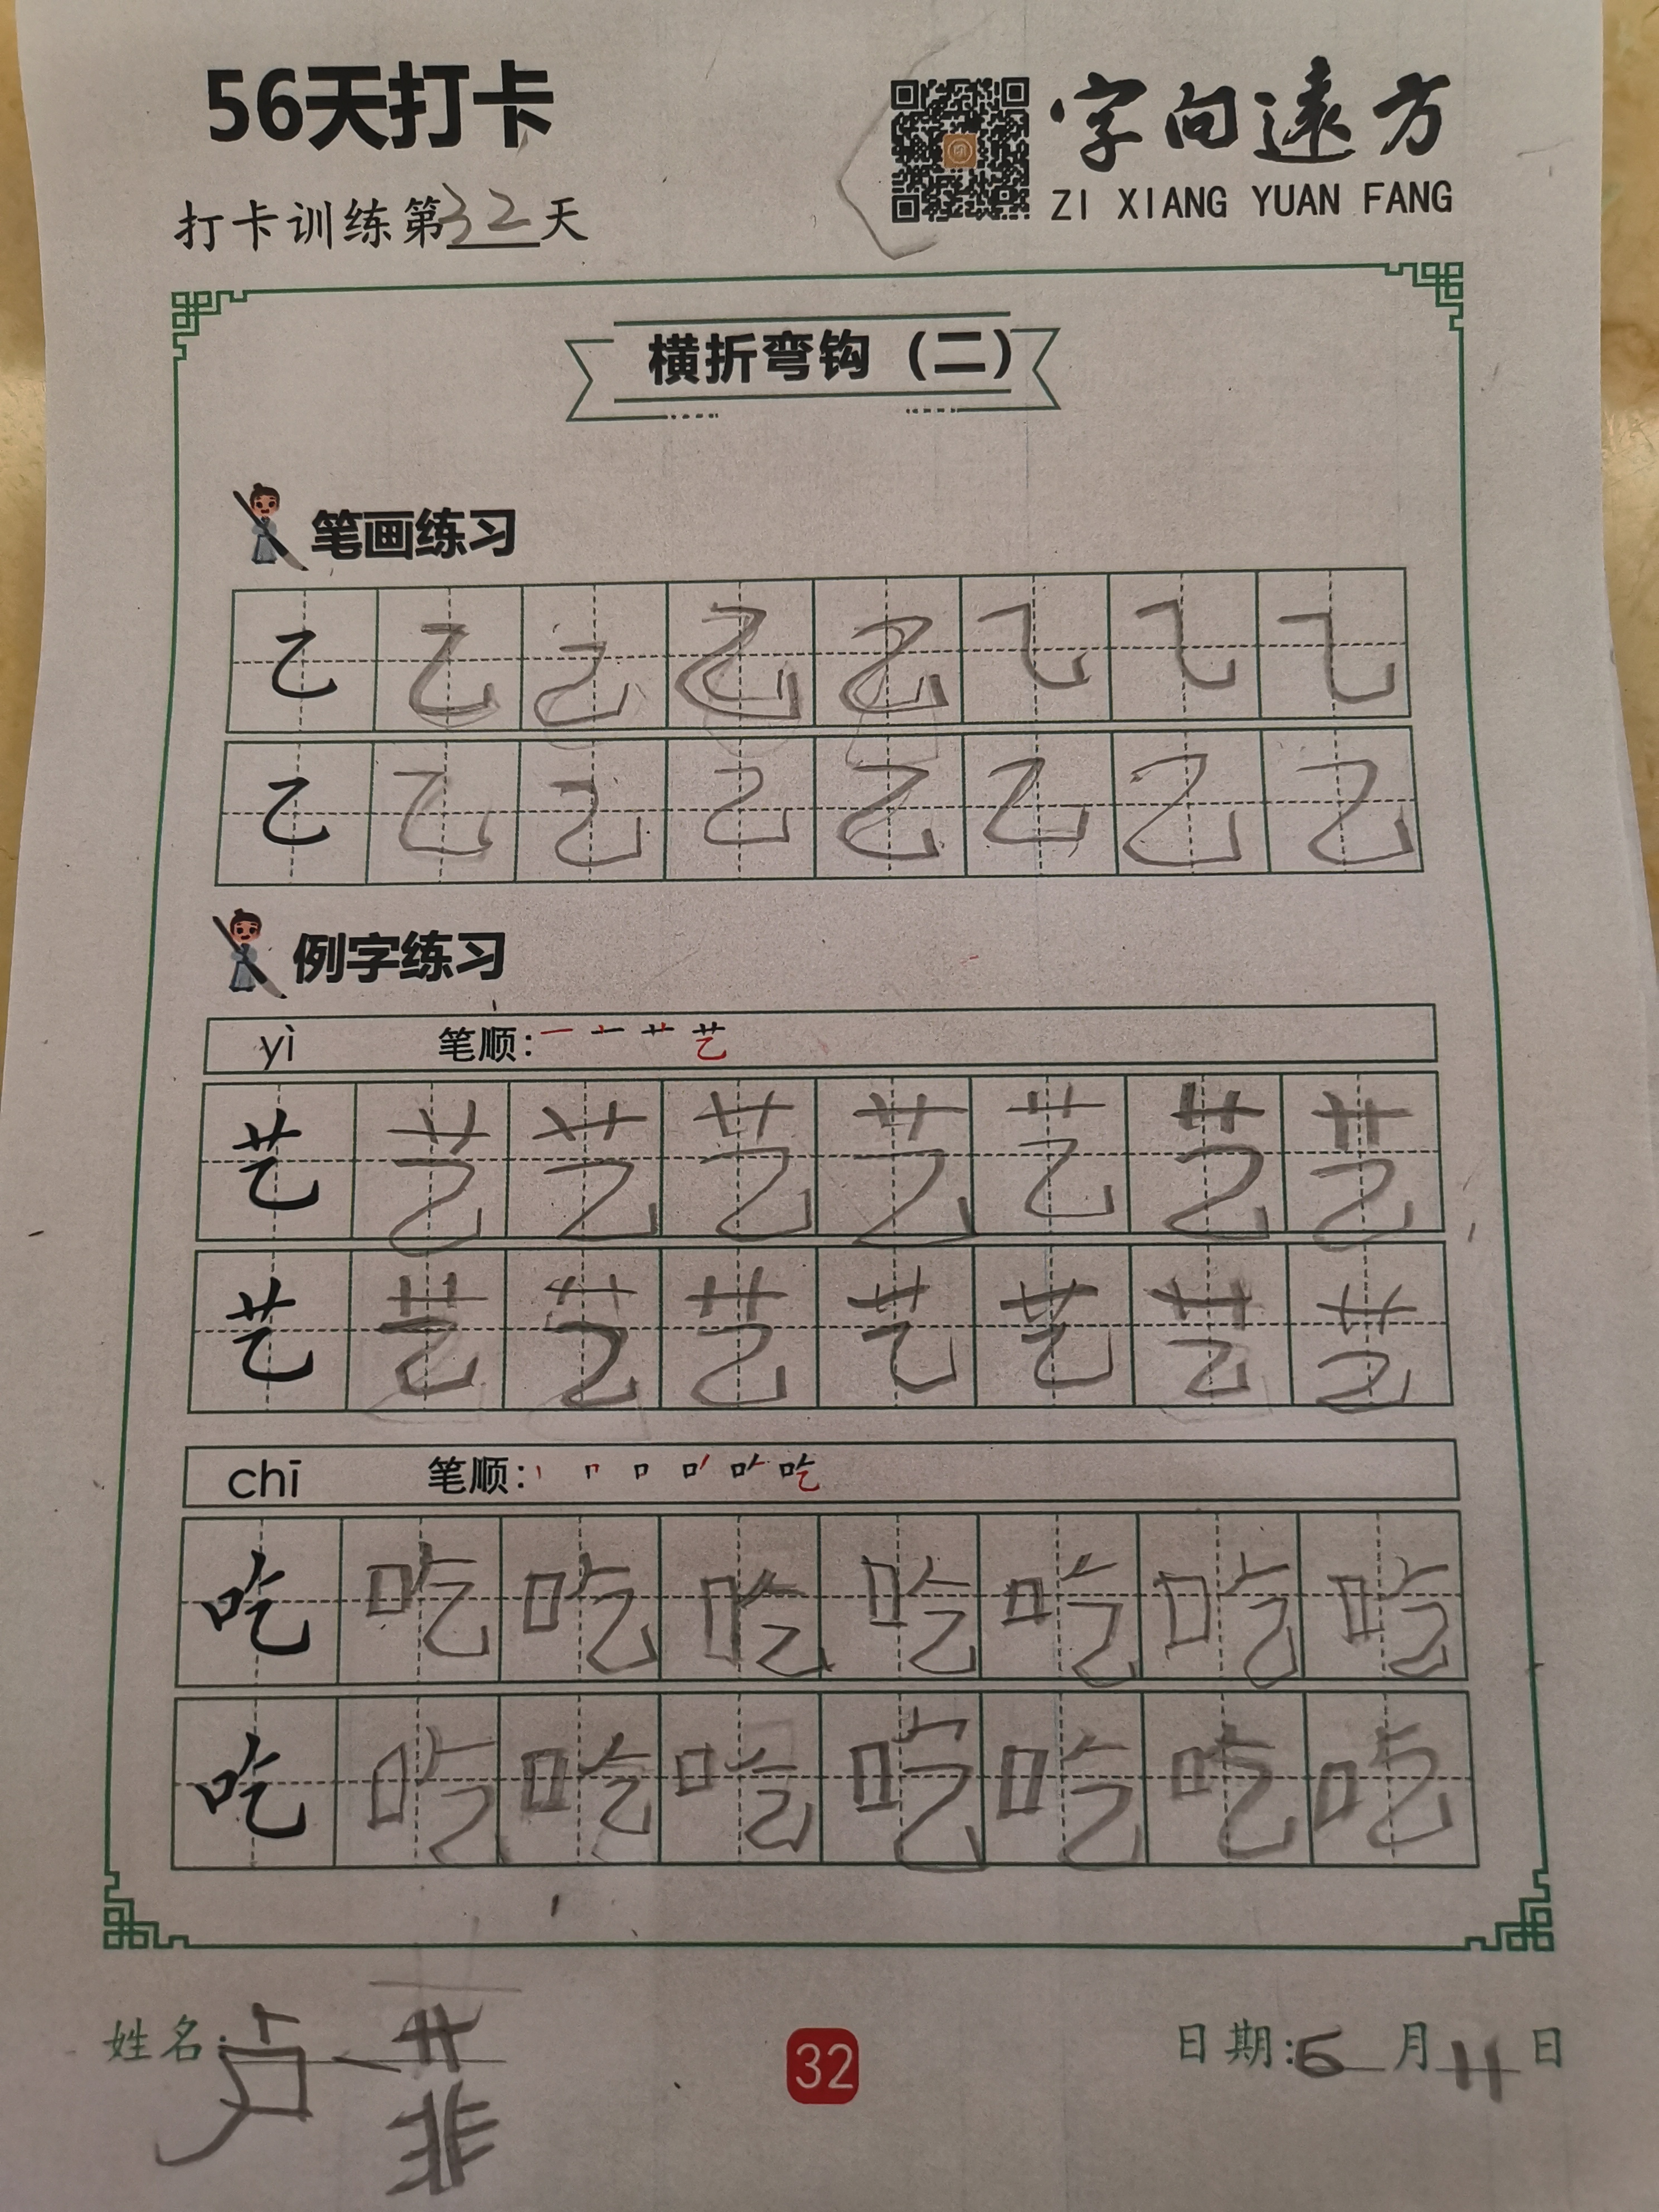 56天打卡
字向遠方
ZI XIANG YUAN FANG
打卡训练第32天
横折弯钩（二）
笔画练习
乙 乙 乙 乙 乙 乙 乙 乙
乙 乙 乙 乙 乙 乙 乙 乙
例字练习
yì 笔顺：一 艹 艺
艺 艺 艺 艺 艺 艺 艺 艺
艺 艺 艺 艺 艺 艺 艺 艺
chī 笔顺：丨 冂 口 吃
吃 吃 吃 吃 吃 吃 吃 吃
吃 吃 吃 吃 吃 吃 吃 吃
姓名：卢一菲
32
日期：6月11日